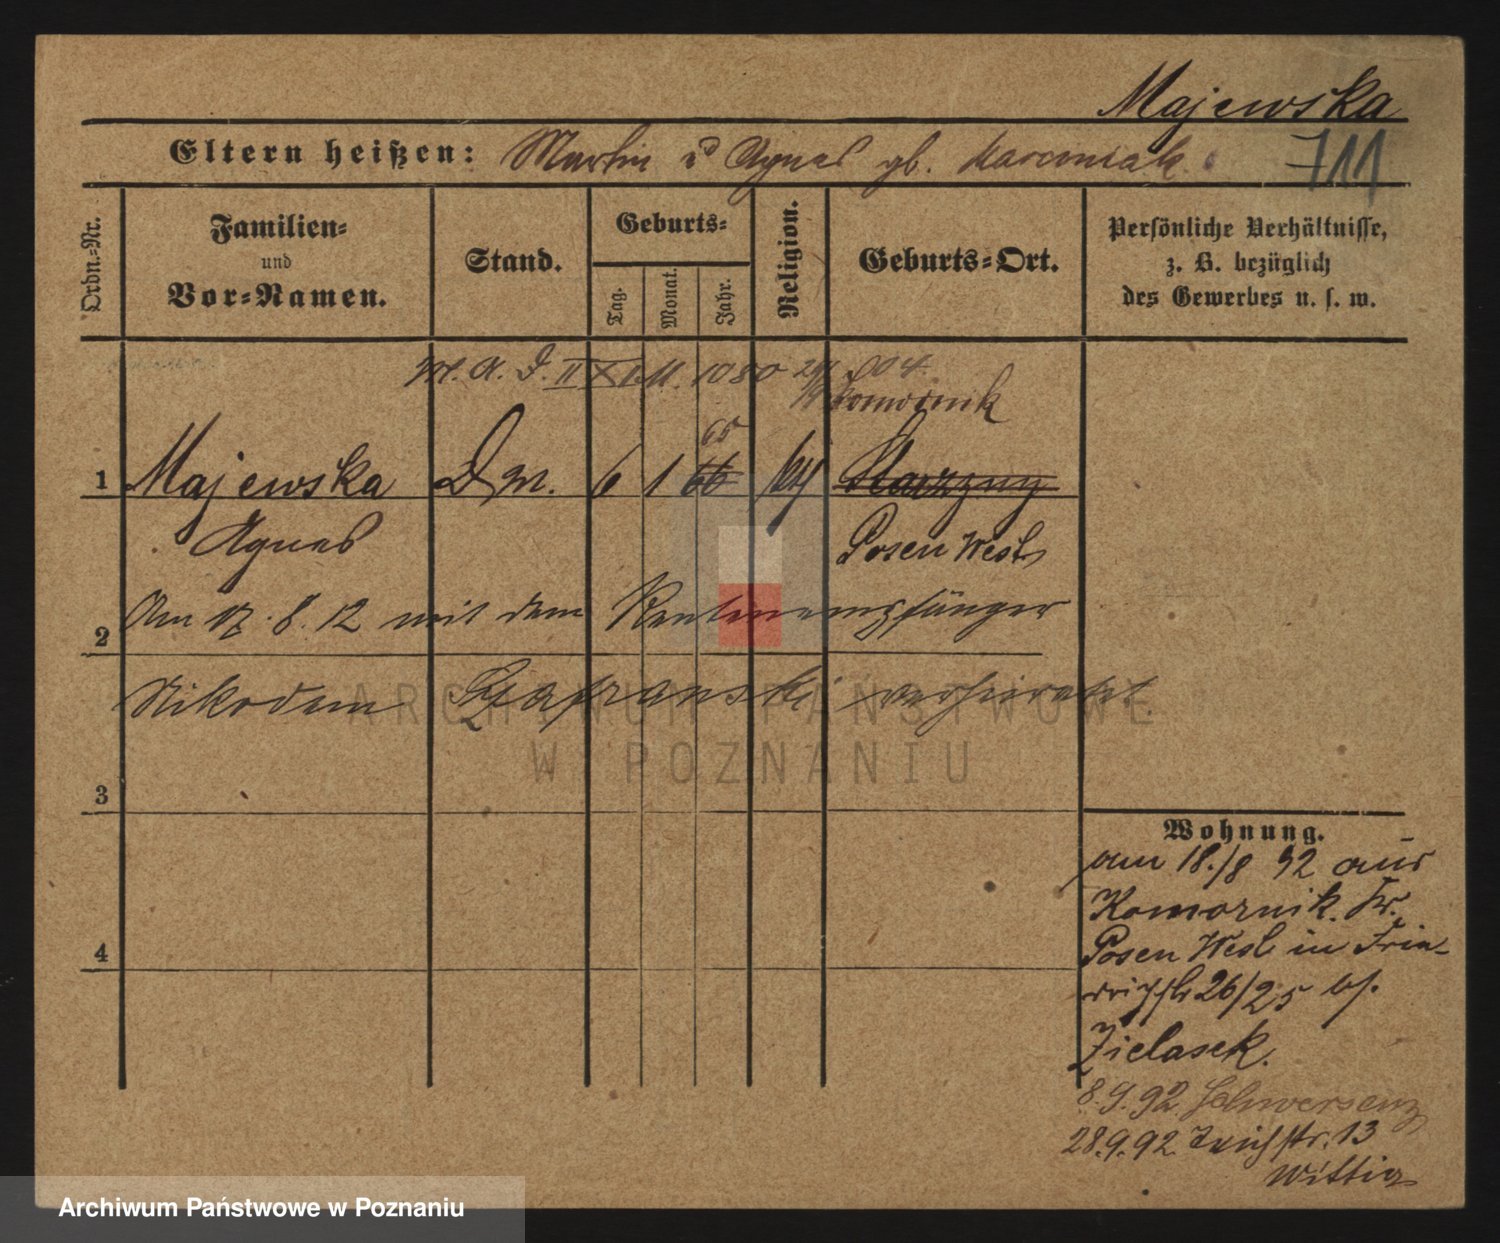 Majewska
Eltern heißen: Martin u Agnes gb. Marciniak.
711
Ordn.-Nr.
Familien-
und
Vor-Namen.
Stand.
Geburts-
Tag.
Monat.
Jahr.
Religion.
Geburts-Ort.
Persönliche Verhältnisse,
z. B. bezüglich
des Gewerbes u. s. w.
Komornik
65
1 Majewska 6 1 66
Agnes
Posen West
2 Am 17.8.12 mit dem Rentenempfänger
Nikodem Szafranski verheiratet.
3
4
Wohnung.
am 18./8 92 aus
Komornik. Kr.
Posen West in
26/25 bs.
Zielasek.
8.9.92 Schwersenz
28.9.92 13
Wittig
ARCHIWUM PAŃSTWOWE
W POZNANIU
Archiwum Państwowe w Poznaniu